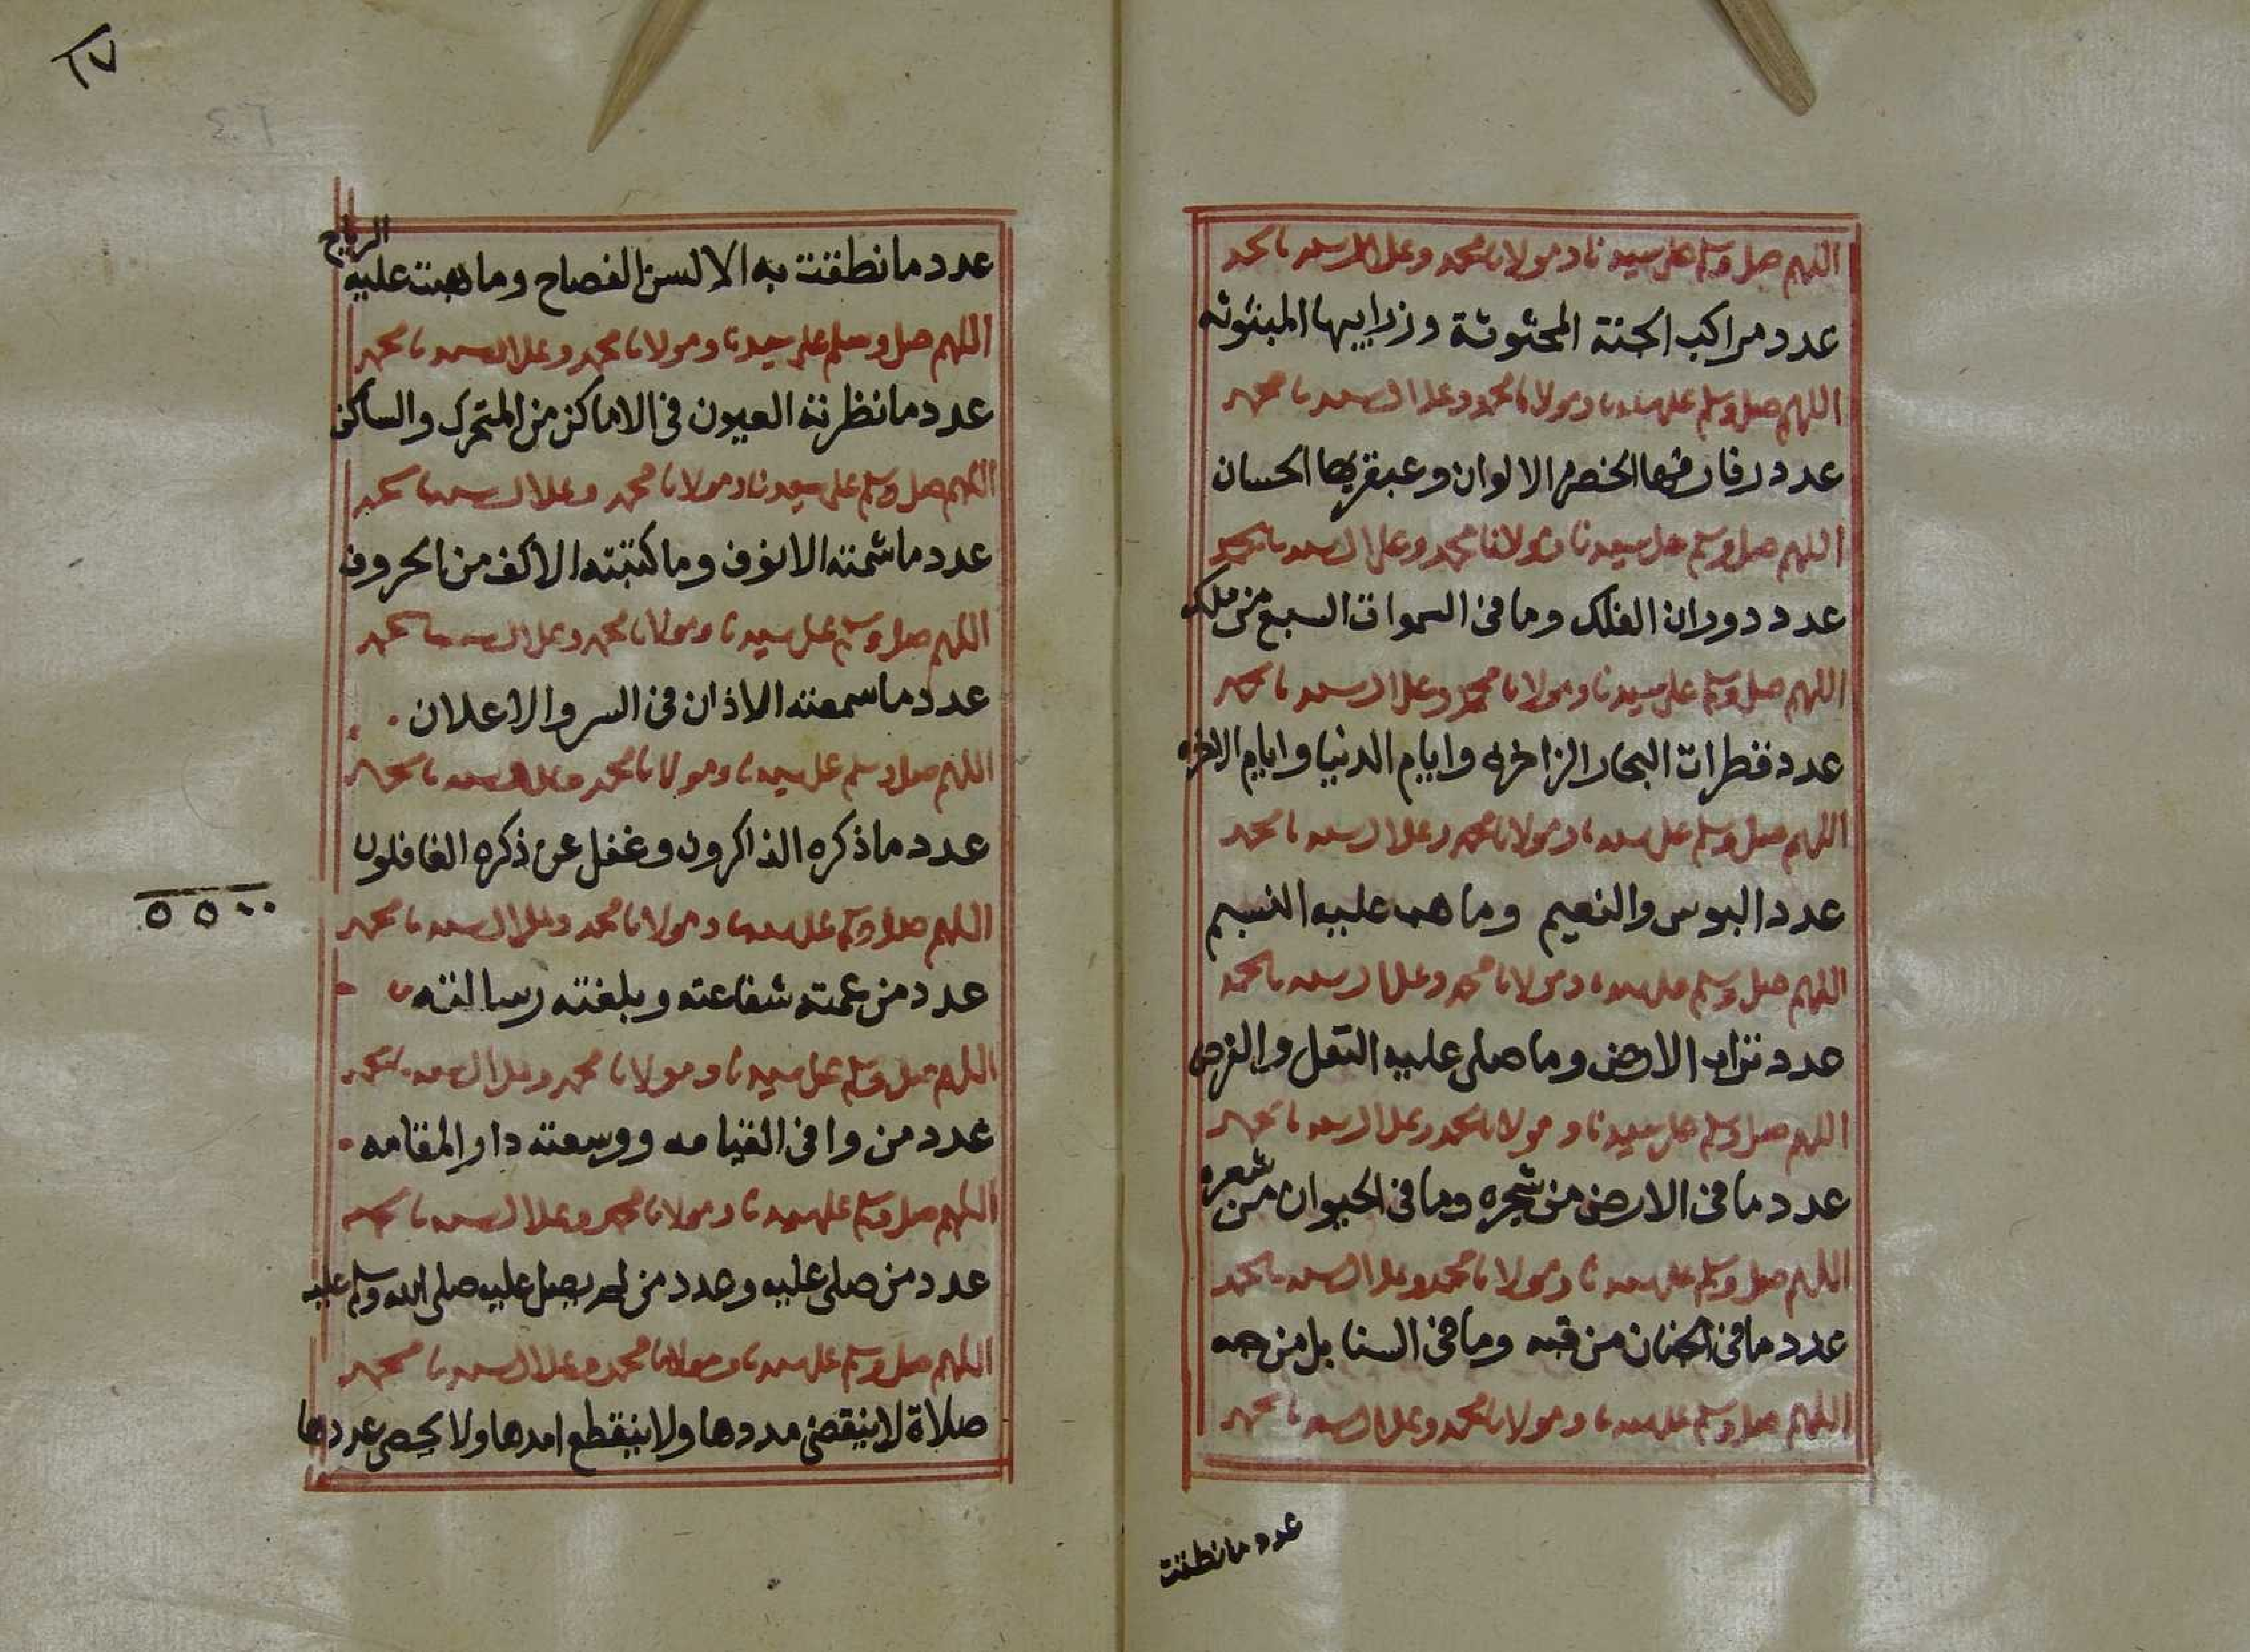 اللهم صل وسلم على سيدنا ومولانا محمد وعلى ال سيدنا محمد
عدد مراكب الجنة المحثوثة وزرابيها المبثوثه
اللهم صل وسلم على سيدنا ومولانا محمد وعلى ال سيدنا محمد
عدد رفارفها الخضر الالوان وعبقريها الحسان
اللهم صل وسلم على سيدنا ومولانا محمد وعلى ال سيدنا محمد
عدد دوران الفلك وما فى السموات السبع من ملك
اللهم صل وسلم على سيدنا ومولانا محمد وعلى ال سيدنا محمد
عدد قطرات البحار الزاخره وايام الدنيا وايام الاخره
اللهم صل وسلم على سيدنا ومولانا محمد وعلى ال سيدنا محمد
عدد البوس والنعيم وما هب عليه النسيم
اللهم صل وسلم على سيدنا ومولانا محمد وعلى ال سيدنا محمد
عدد تراب الارض وما صلى عليه النفل والفرض
اللهم صل وسلم على سيدنا ومولانا محمد وعلى ال سيدنا محمد
عدد ما فى الارض من شجره وما فى الحيوان من شعره
اللهم صل وسلم على سيدنا ومولانا محمد وعلى ال سيدنا محمد
عدد ما فى الجنان من قبه وما فى السنابل من حبه
اللهم صل وسلم على سيدنا ومولانا محمد وعلى ال سيدنا محمد
عدد ما نطقت
٦٧
عدد ما نطقت به الالسن الفصاح وما هبت عليه الرياح
اللهم صل وسلم على سيدنا ومولانا محمد وعلى ال سيدنا محمد
عدد ما نظرته العيون فى الاماكن من المتحرك والساكن
اللهم صل وسلم على سيدنا ومولانا محمد وعلى ال سيدنا محمد
عدد ما شمته الانوف وما كتبته الاكف من الحروف
اللهم صل وسلم على سيدنا ومولانا محمد وعلى ال سيدنا محمد
عدد ما سمعته الاذان فى السر والاعلان
اللهم صل وسلم على سيدنا ومولانا محمد وعلى ال سيدنا محمد
عدد ما ذكره الذاكرون وغفل عن ذكره الغافلون
اللهم صل وسلم على سيدنا ومولانا محمد وعلى ال سيدنا محمد
عدد من عمته شفاعته وبلغته رسالته
اللهم صل وسلم على سيدنا ومولانا محمد وعلى ال سيدنا محمد
عدد من وافى القيامه ووسعته دار المقامه
اللهم صل وسلم على سيدنا ومولانا محمد وعلى ال سيدنا محمد
عدد من صلى عليه وعدد من لم يصل عليه صلى الله وسلم عليه
اللهم صل وسلم على سيدنا ومولانا محمد وعلى ال سيدنا محمد
صلاة لا ينقضى مددها ولا ينقطع امدها ولا يحصى عددها
٥٥٠٠